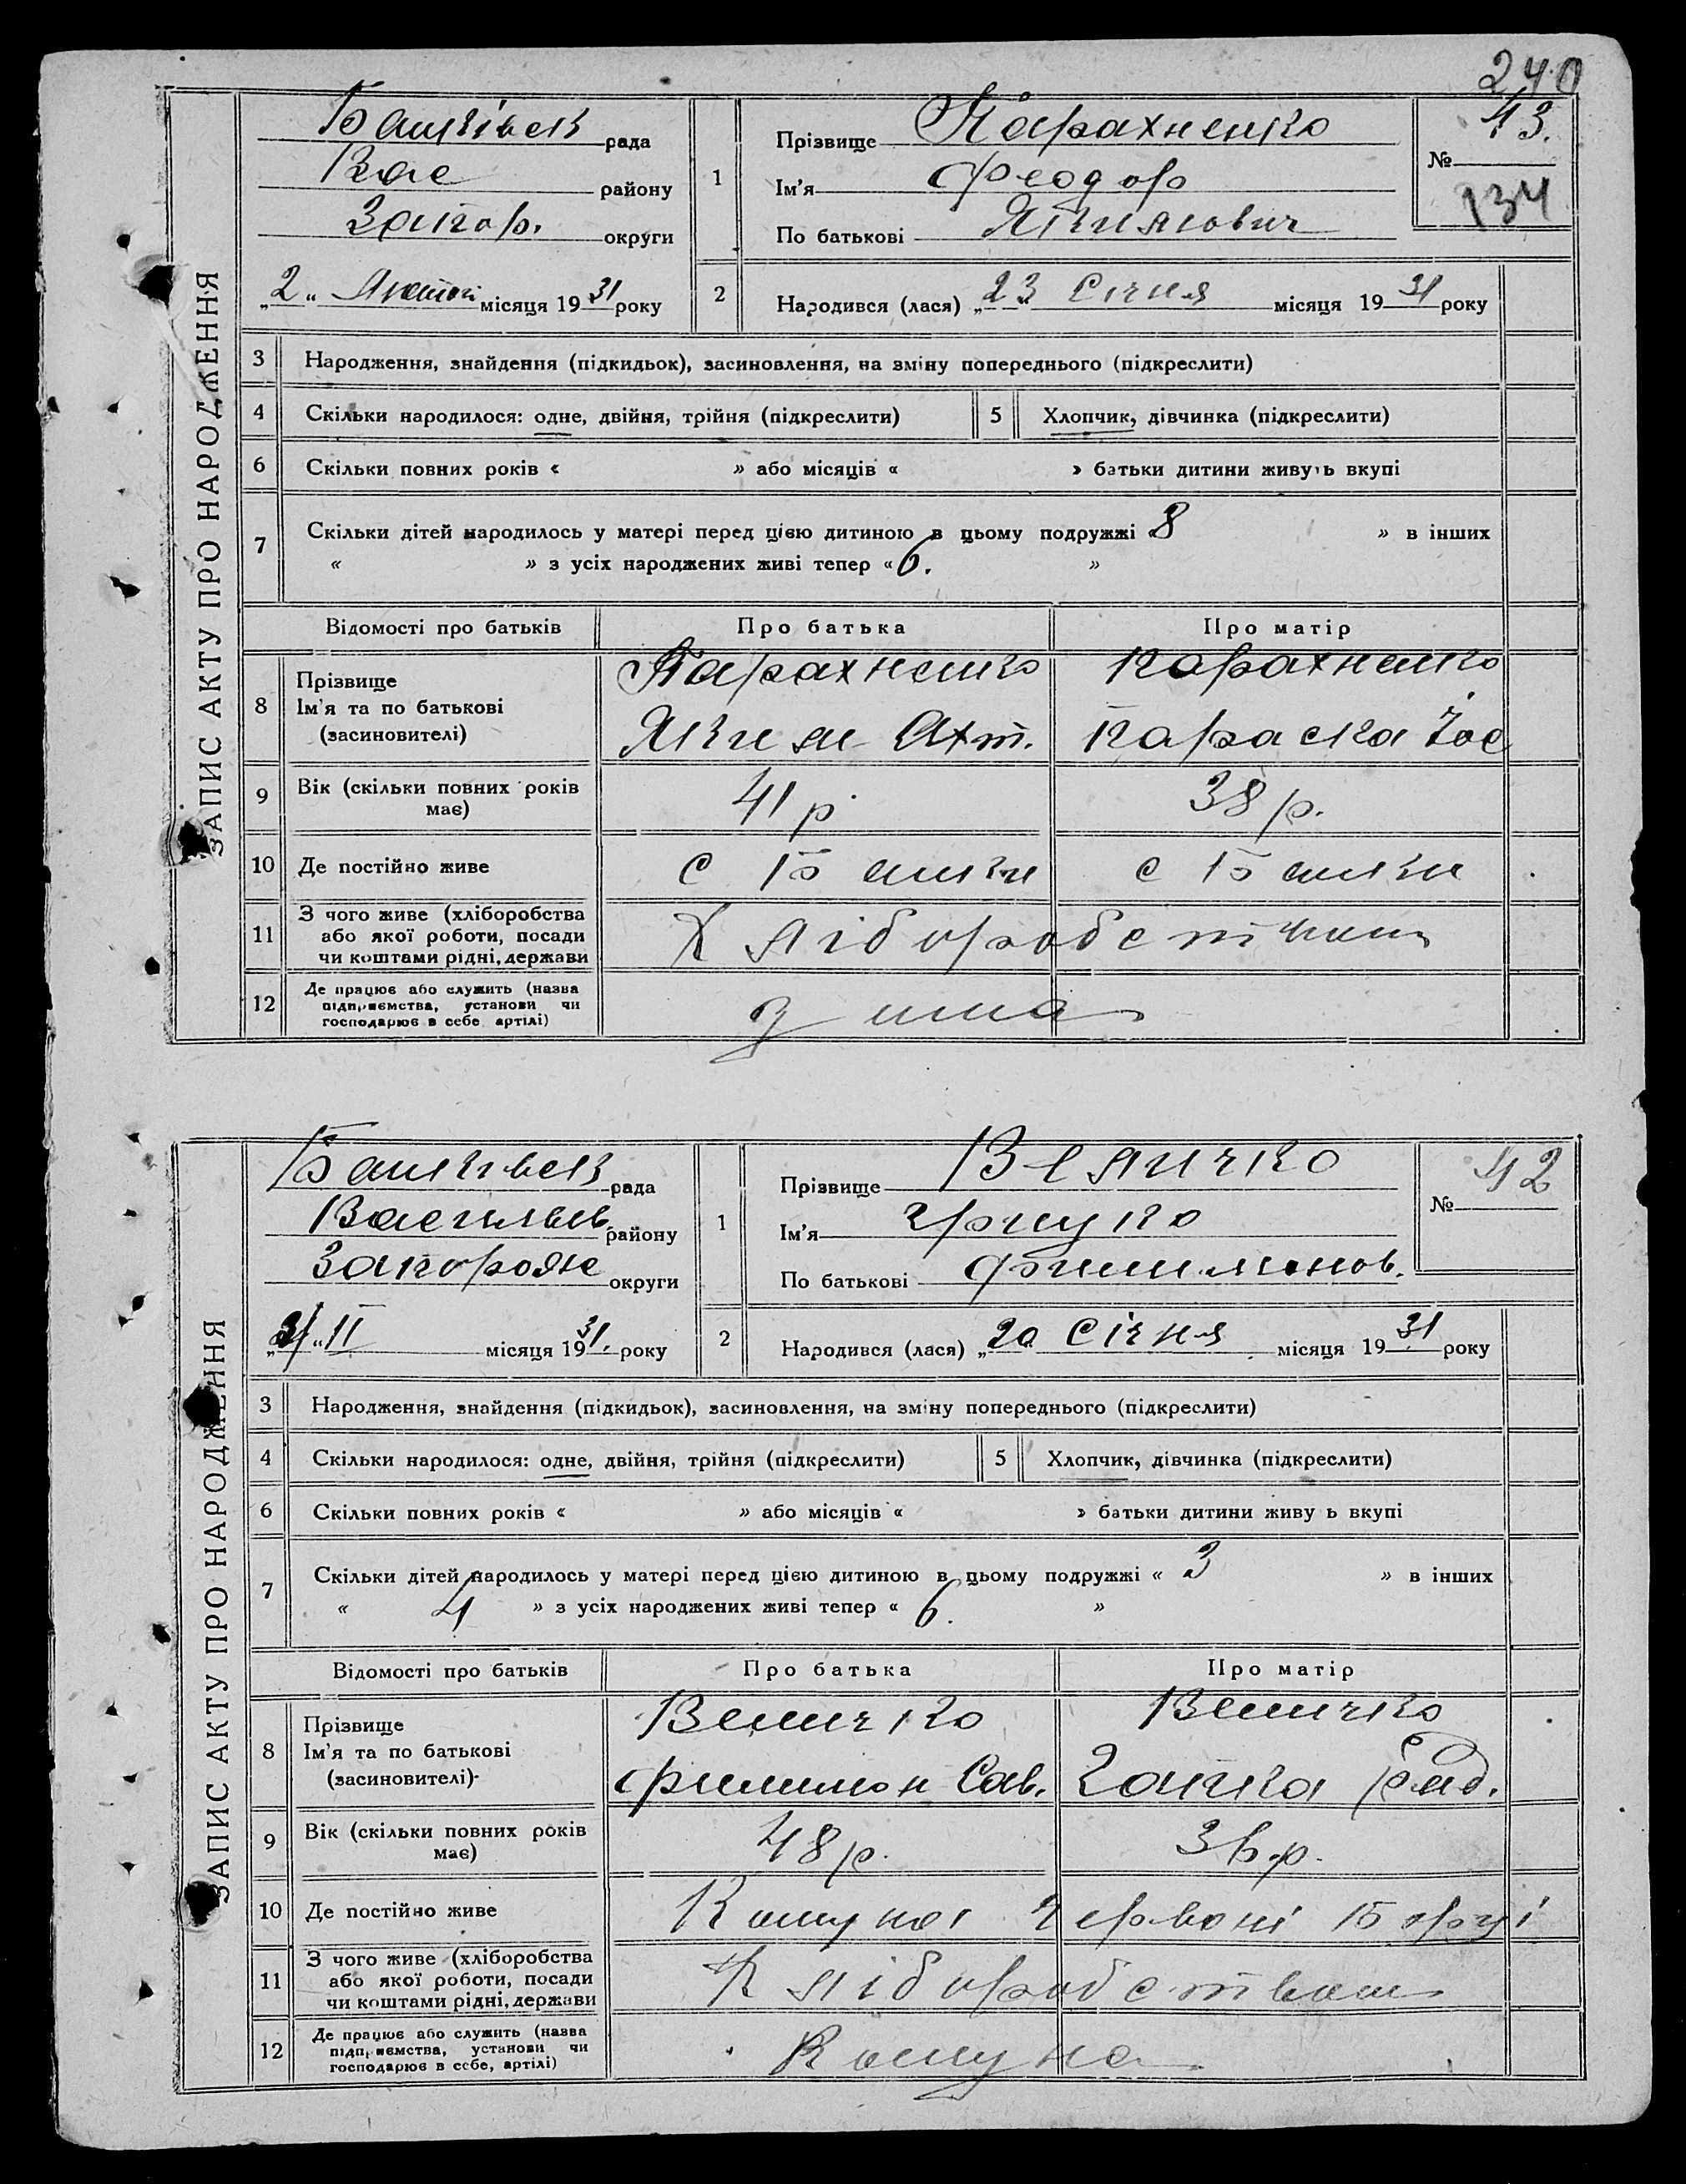 240
ЗАПИС АКТУ ПРО НАРОДЖЕННЯ
Балківськ рада
Вас району
Запор. округи
„2“ Лютого місяця 1931 року
1
Прізвище Парахненко
Ім'я Феодор
По батькові Якимович
43.
№
134
2
Народився (лася) „23 Січня місяця 1931 року
3 Народження, знайдення (підкидьок), засиновлення, на зміну попереднього (підкреслити)
4 Скільки народилося: одне, двійня, трійня (підкреслити) 5 Хлопчик, дівчинка (підкреслити)
6 Скільки повних років « » або місяців « » батьки дитини живуть вкупі
7 Скільки дітей народилось у матері перед цією дитиною в цьому подружжі «8 » в інших
« » з усіх народжених живі тепер «6. »
Відомості про батьків Про батька Про матір
8 Прізвище
Ім'я та по батькові
(засиновителі)
Парахненко
Яким
Парахненко
Параска
9 Вік (скільки повних років
має)
41 р
38 р.
10 Де постійно живе с Балки с Балки
11 З чого живе (хліборобства
або якої роботи, посади
чи коштами рідні, держави
Хліборобством
12 Де працює або служить (назва
підприємства, установи чи
господарює в себе артілі)
ЗАПИС АКТУ ПРО НАРОДЖЕННЯ
Балківськ рада
Васильів. району
Запорожс округи
„ “ II місяця 1931. року
1
Прізвище Величко
Ім'я Грицько
По батькові Филимонов.
42
№
2
Народився (лася) „20 Січня місяця 1931 року
3 Народження, знайдення (підкидьок), засиновлення, на зміну попереднього (підкреслити)
4 Скільки народилося: одне, двійня, трійня (підкреслити) 5 Хлопчик, дівчинка (підкреслити)
6 Скільки повних років « » або місяців « » батьки дитини живу ь вкупі
7 Скільки дітей народилось у матері перед цією дитиною в цьому подружжі « 3 » в інших
« 4 » з усіх народжених живі тепер « 6. »
Відомості про батьків Про батька Про матір
8 Прізвище
Ім'я та по батькові
(засиновителі)
Величко
Филимон Сав.
Величко
Ганка
9 Вік (скільки повних років
має)
48 р.
36 р.
10 Де постійно живе Комуна Червоні Борці
11 З чого живе (хліборобства
або якої роботи, посади
чи коштами рідні, держави
Хліборобством
12 Де працює або служить (назва
підприємства, установи чи
господарює в себе, артілі)
Комуна